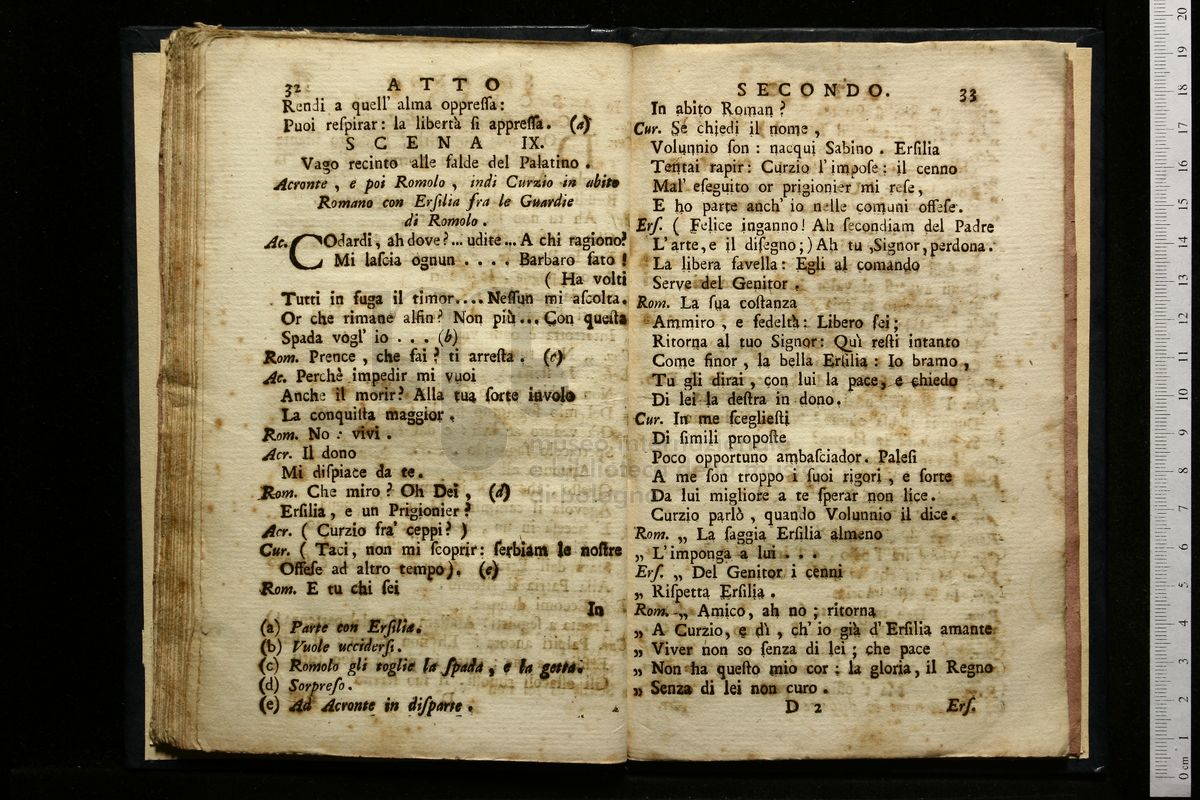 32 ATTO
Rendi a quell' alma oppreſſa:
Puoi reſpirar: la libertà ſi appreſſa. (a)
SCENA IX.
Vago recinto alle falde del Palatino.
Acronte, e poi Romolo, indi Curzio in abito
Romano con Erſilia fra le Guardie
di Romolo.
Ac. COdardi, ah dove?... udite... A chi ragiono?
Mi laſcia ognun .... Barbaro fato!
( Ha volti
Tutti in fuga il timor.... Neſſun mi aſcolta.
Or che rimane alfin? Non più... Con queſta
Spada vogl' io ... (b)
Rom. Prence, che fai? ti arreſta. (c)
Ac. Perchè impedir mi vuoi
Anche il morir? Alla tua ſorte involo
La conquiſta maggior.
Rom. No: vivi.
Acr. Il dono
Mi diſpiace da te.
Rom. Che miro? Oh Dei, (d)
Erſilia, e un Prigionier?
Acr. ( Curzio fra' ceppi? )
Cur. ( Taci, non mi ſcoprir: ſerbiam le noſtre
Offeſe ad altro tempo). (e)
Rom. E tu chi ſei
In
(a) Parte con Erſilia.
(b) Vuole ucciderſi.
(c) Romolo gli toglie la ſpada, e la getta.
(d) Sorpreſo.
(e) Ad Acronte in diſparte.
SECONDO. 33
In abito Roman?
Cur. Se chiedi il nome,
Volunnio ſon: nacqui Sabino. Erſilia
Tentai rapir: Curzio l'impoſe: il cenno
Mal' eſeguito or prigionier mi reſe,
E ho parte anch' io nelle comuni offeſe.
Erſ. ( Felice inganno! Ah ſecondiam del Padre
L'arte, e il diſegno;) Ah tu, Signor, perdona.
La libera favella: Egli al comando
Serve del Genitor.
Rom. La ſua coſtanza
Ammiro, e fedeltà: Libero ſei;
Ritorna al tuo Signor: Quì reſti intanto
Come finor, la bella Erſilia: Io bramo,
Tu gli dirai, con lui la pace, e chiedo
Di lei la deſtra in dono.
Cur. In me ſceglieſti
Di ſimili propoſte
Poco opportuno ambaſciador. Paleſi
A me ſon troppo i ſuoi rigori, e ſorte
Da lui migliore a te ſperar non lice.
Curzio parlò, quando Volunnio il dice.
Rom. „ La ſaggia Erſilia almeno
„ L'imponga a lui ...
Erſ. „ Del Genitor i cenni
„ Riſpetta Erſilia.
Rom. „ Amico, ah no; ritorna
„ A Curzio, e dì, ch' io già d' Erſilia amante
„ Viver non so ſenza di lei; che pace
„ Non ha queſto mio cor: la gloria, il Regno
„ Senza di lei non curo.
D 2 Erſ.